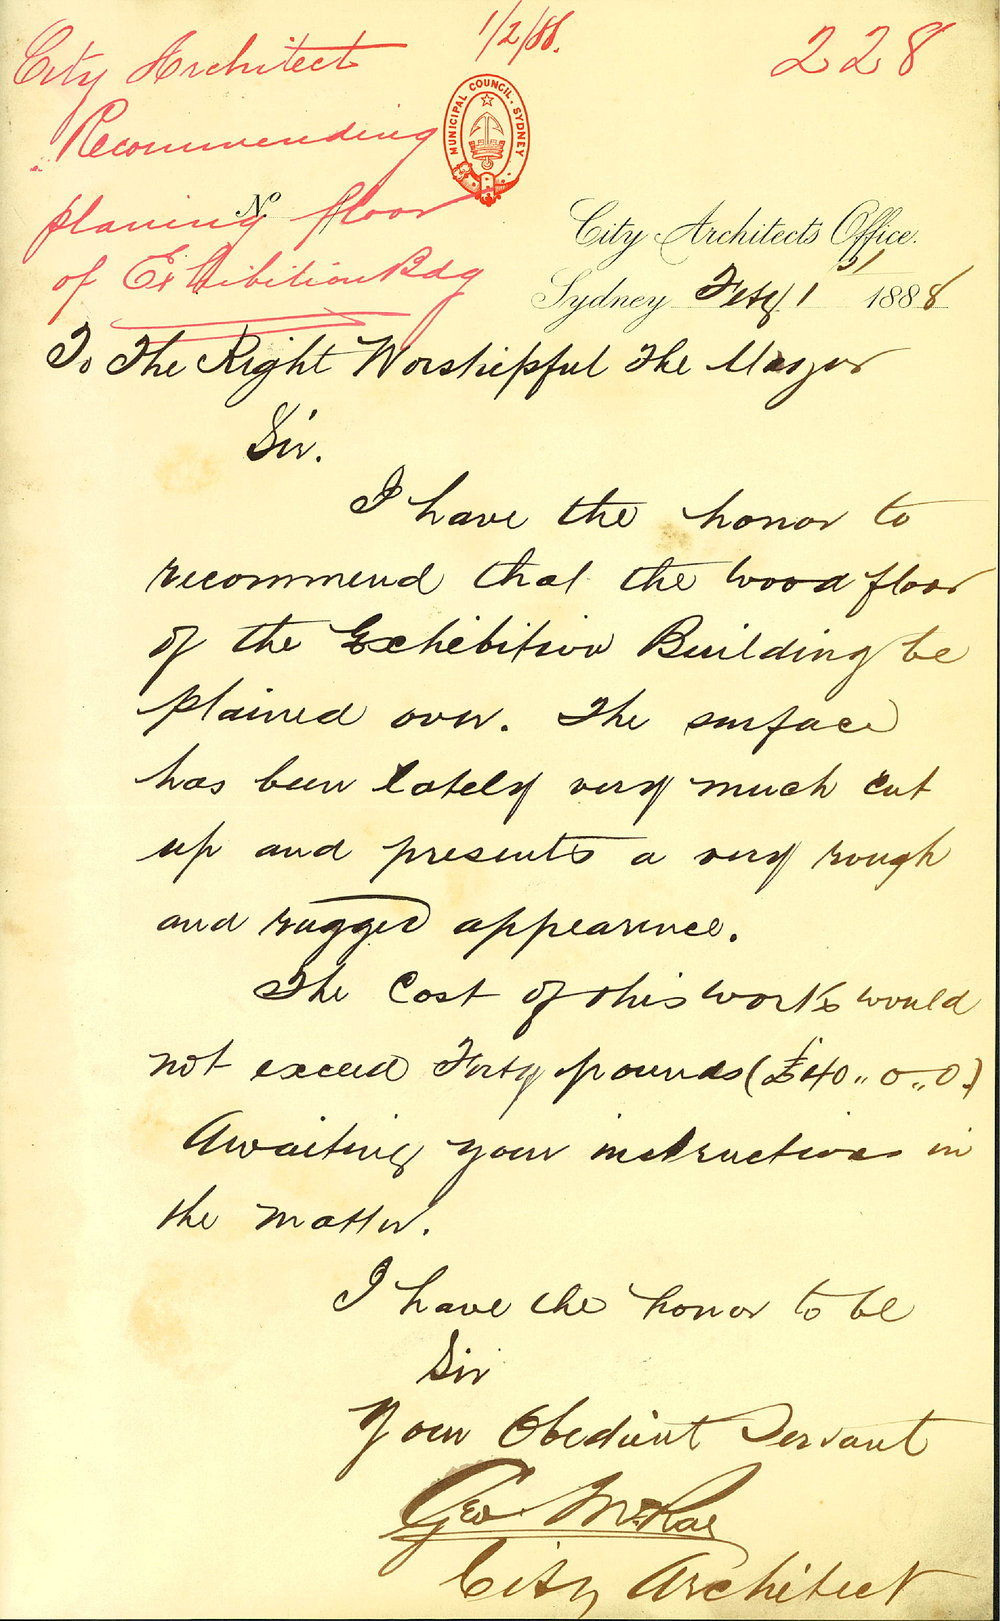 City Architect
1/2/88.
228
Recommending
planing floor
of Exhibition Bdg
MUNICIPAL COUNCIL. SYDNEY
No
City Architects Office.
Sydney Feby 1st 1888
To The Right Worshipful The Mayor
Sir.
I have the honor to
recommend that the wood floor
of the Exhibition Building be
plained over. The surface
has been lately very much cut
up and presents a very rough
and ragged appearance.
The Cost of this work would
not exceed Forty pounds (£40,,0,,0.)
Awaiting your instructions in
the matter.
I have the honor to be
Sir
Your Obedient Servant
Geo McRae
City Architect